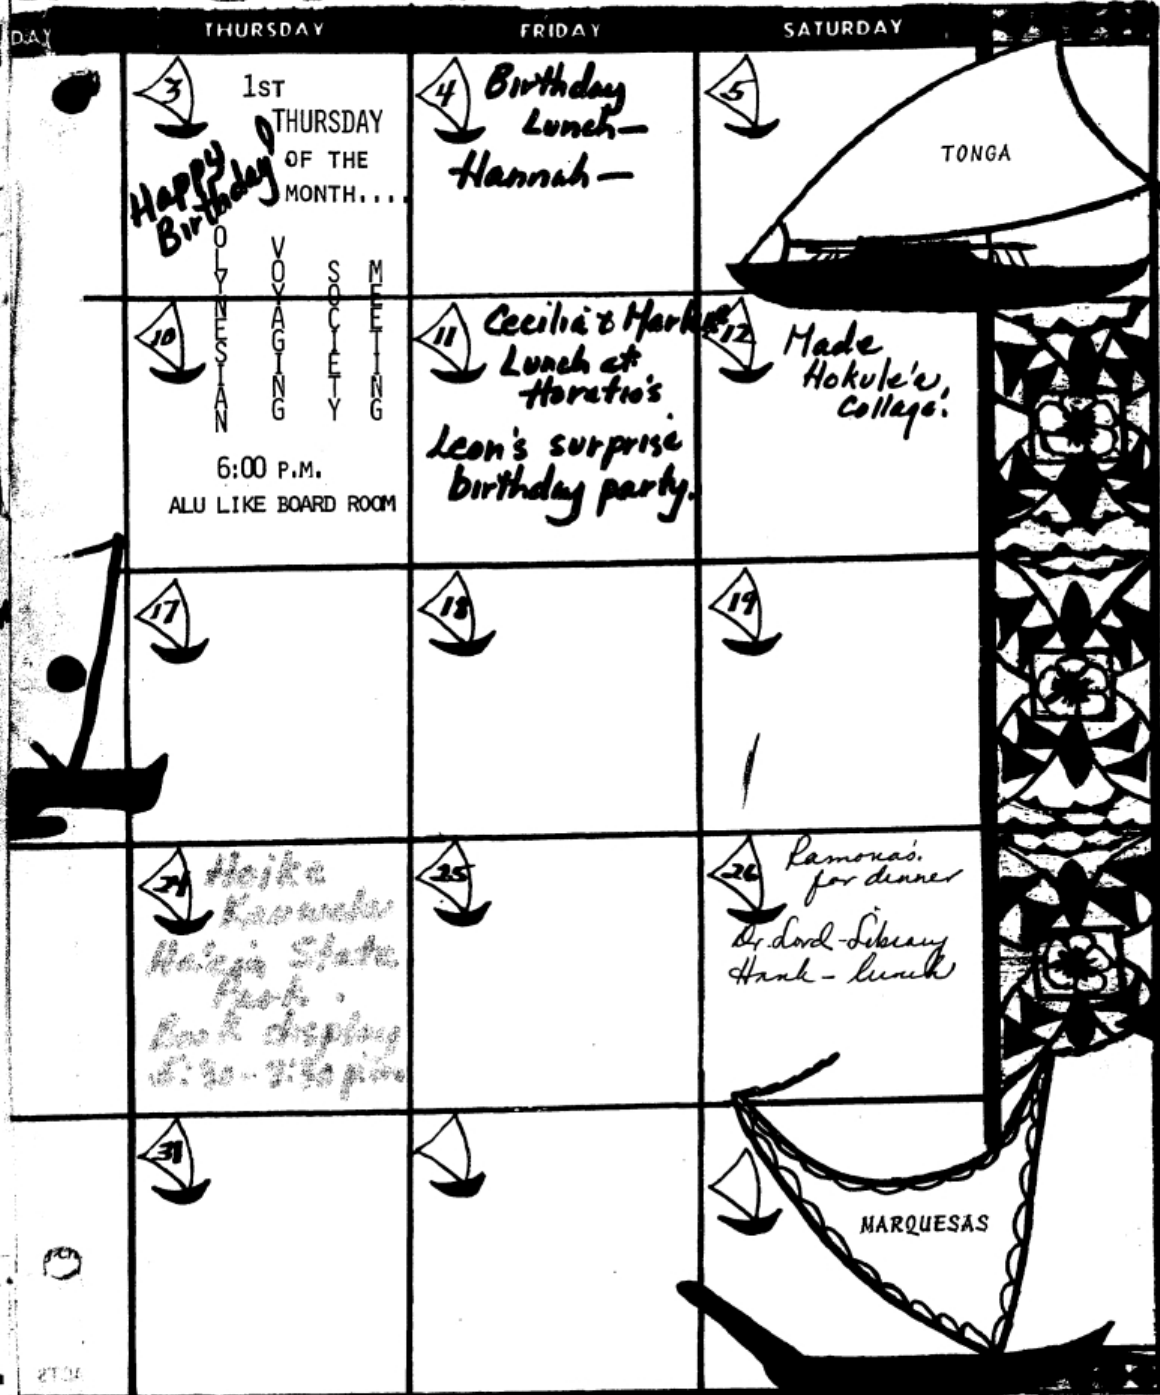 DAY THURSDAY FRIDAY SATURDAY
3
1ST
THURSDAY
OF THE
MONTH....
Happy
Birthday!
POLYNESIAN
VOYAGING
SOCIETY
MEETING
6:00 P.M.
ALU LIKE BOARD ROOM
4
Birthday
Lunch—
Hannah—
5
TONGA
10
11
Cecilia &
Lunch at
Horatio's
Leon's surprise
birthday party.
12
Made
Hokule'a
Collage!
17
18
19
24
State
Park.
Book display
25
26
Ramona's
for dinner
Dr. Lord-Library
Hank - lunch
31
MARQUESAS